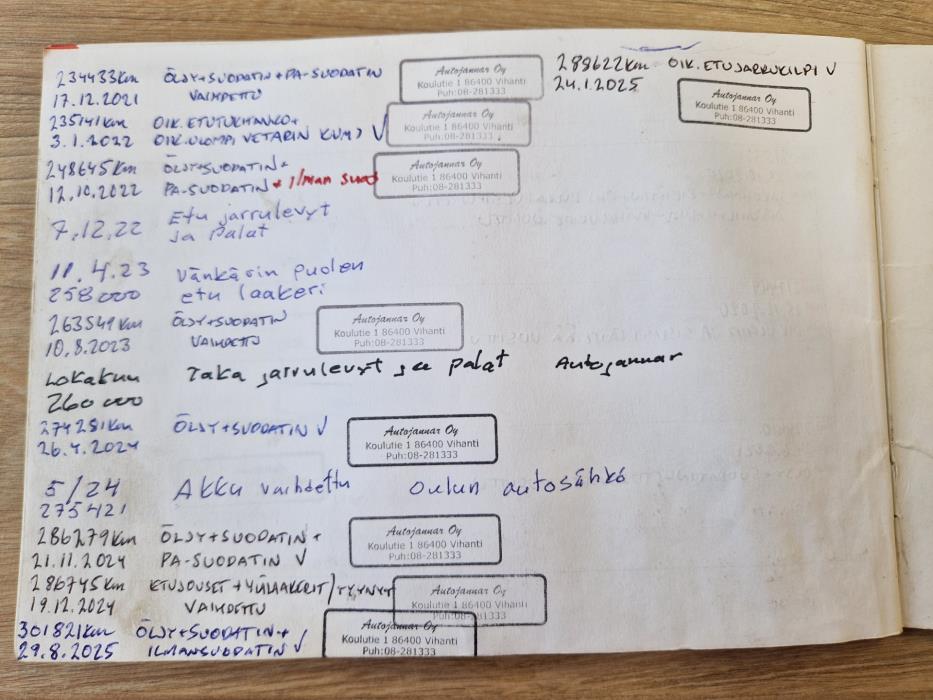 234433km ÖLJY+SUODATIN+PA-SUODATIN
17.12.2021 VAIHDETTU
Autojannar Oy
Koulutie 1 86400 Vihanti
Puh:08-281333
235141km OIK.ETUTUKIVARKO+
3.1.2022 OIK.ULOMPI VETARIN KUMI V
Autojannar Oy
Koulutie 1 86400 Vihanti
Puh:08-281333
248645km ÖLJY+SUODATIN+
12.10.2022 PA-SUODATIN + Ilman suod
Autojannar Oy
Koulutie 1 86400 Vihanti
Puh:08-281333
7.12.22 Etu jarrulevyt
ja Palat
11.4.23 Vänkärin puolen
258000 etu laakeri
263549km ÖLJY+SUODATIN
10.8.2023 VAIHDETTU
Autojannar Oy
Koulutie 1 86400 Vihanti
Puh:08-281333
Lokakuu Taka jarrulevyt ja palat Autojannar
260 000
274281km ÖLJY+SUODATIN V
26.4.2024
Autojannar Oy
Koulutie 1 86400 Vihanti
Puh:08-281333
5/24 Akku vaihdettu Oulun autosähkö
275421
286279km ÖLJY+SUODATIN+
21.11.2024 PA-SUODATIN V
Autojannar Oy
Koulutie 1 86400 Vihanti
Puh:08-281333
286745km ETUJOUSET+YLÄLAAKERIT/TYYNYT
19.12.2024 VAIHDETTU
Autojannar Oy
Koulutie 1 86400 Vihanti
Puh:08-281333
301821km ÖLJY+SUODATIN+
29.8.2025 ILMANSUODATIN V
Autojannar Oy
Koulutie 1 86400 Vihanti
Puh:08-281333
288622km OIK.ETUJARRUKILPI V
24.1.2025
Autojannar Oy
Koulutie 1 86400 Vihanti
Puh:08-281333